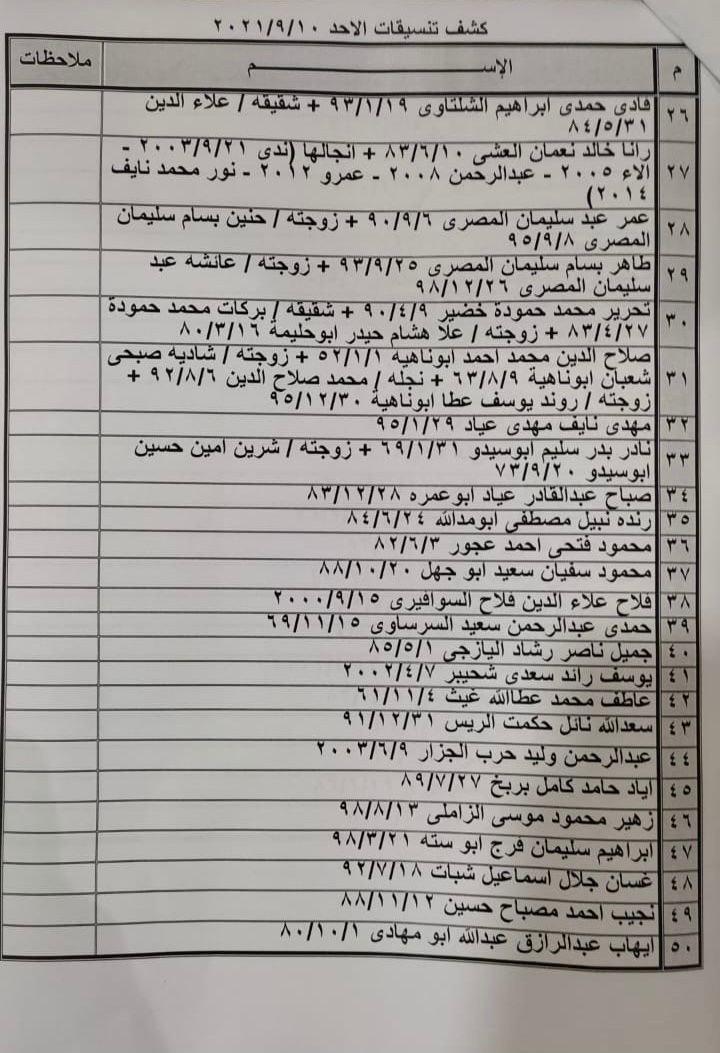 كشف تنسيقات الاحد ٢٠٢١/٩/١٠
م الإســـــــــم ملاحظات
٢٦ فادى حمدى ابراهيم الشلتاوى ٩٣/١/١٩ + شقيقه / علاء الدين
٨٤/٥/٣١
رانا خالد نعمان العشى ٨٣/٦/١٠ + انجالها (ندى ٢٠٠٣/٩/٢١ -
٢٧ الاء ٢٠٠٥ - عبدالرحمن ٢٠٠٨ - عمرو ٢٠١٢ - نور محمد نايف
٢٠١٤)
٢٨ عمر عبد سليمان المصرى ٩٠/٩/٦ + زوجته / حنين بسام سليمان
المصرى ٩٥/٩/٨
٢٩ طاهر بسام سليمان المصرى ٩٣/٩/٢٥ + زوجته / عائشه عبد
سليمان المصرى ٩٨/١٢/٢٦
٣٠ تحرير محمد حمودة خضير ٩٠/٤/٩ + شقيقه / بركات محمد حمودة
٨٣/٤/٢٧ + زوجته / علا هشام حيدر ابوحليمة ٨٠/٣/١٦
صلاح الدين محمد احمد ابوناهيه ٥٢/١/١ + زوجته / شاديه صبحى
٣١ شعبان ابوناهية ٦٣/٨/٩ + نجله / محمد صلاح الدين ٩٢/٨/٦ +
زوجته / روند يوسف عطا ابوناهية ٩٥/١٢/٣٠
٣٢ مهدى نايف مهدى عياد ٩٥/١/٢٩
٣٣ نادر بدر سليم ابوسيدو ٦٩/١/٣١ + زوجته / شرين امين حسين
ابوسيدو ٧٣/٩/٢٠
٣٤ صباح عبدالقادر عياد ابوعمره ٨٣/١٢/٢٨
٣٥ رنده نبيل مصطفى ابومدالله ٨٤/٦/٢٤
٣٦ محمود فتحى احمد عجور ٨٢/٦/٣
٣٧ محمود سفيان سعيد ابو جهل ٨٨/١٠/٢٠
٣٨ فلاح علاء الدين فلاح السوافيرى ٢٠٠٠/٩/١٥
٣٩ حمدى عبدالرحمن سعيد السرساوى ٦٩/١١/١٥
٤٠ جميل ناصر رشاد اليازجى ٨٥/٥/١
٤١ يوسف رائد سعدى شحيبر ٢٠٠٢/٤/٧
٤٢ عاطف محمد عطاالله غيث ٦١/١١/٤
٤٣ سعدالله نائل حكمت الريس ٩١/١٢/٣١
٤٤ عبدالرحمن وليد حرب الجزار ٢٠٠٣/٦/٩
٤٥ اياد حامد كامل بربخ ٨٩/٧/٢٧
٤٦ زهير محمود موسى الزاملى ٩٨/٨/١٣
٤٧ ابراهيم سليمان فرج ابو سته ٩٨/٣/٢١
٤٨ غسان جلال اسماعيل شبات ٩٢/٧/١٨
٤٩ نجيب احمد مصباح حسين ٨٨/١١/١٢
٥٠ ايهاب عبدالرازق عبدالله ابو مهادى ٨٠/١٠/١